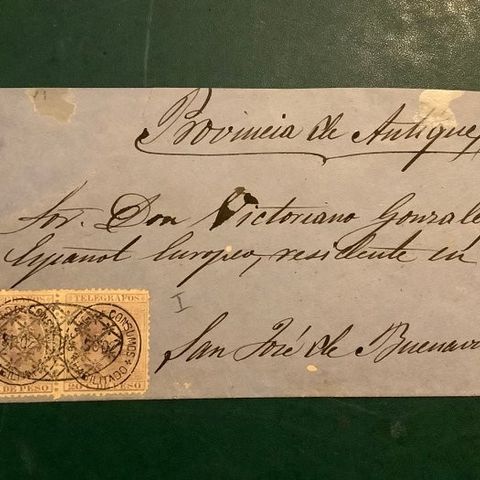 Provincia de Antique,
Sor. Don Victoriano Gonzale
Español Europeo, residente en
San José de Buenav
TELEGRAFOS
CONSUMOS
HABILITADO
DE PESO
20 DE PESO
I